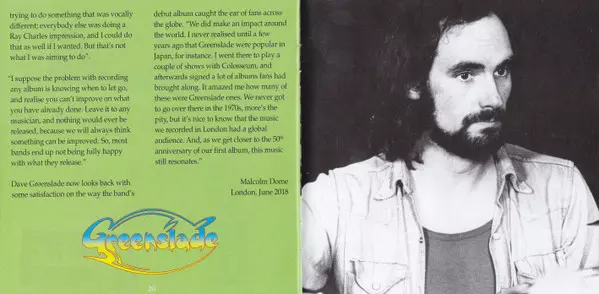 trying to do something that was vocally
different; everybody else was doing a
Ray Charles impression, and I could do
that as well if I wanted. But that's not
what I was aiming to do".
"I suppose the problem with recording
any album is knowing when to let go,
and realise you can't improve on what
you have already done. Leave it to any
musician, and nothing would ever be
released, because we will always think
something can be improved. So, most
bands end up not being fully happy
with what they release."
Dave Greenslade now looks back with
some satisfaction on the way the band's
debut album caught the ear of fans across
the globe. "We did make an impact around
the world. I never realised until a few
years ago that Greenslade were popular in
Japan, for instance. I went there to play a
couple of shows with Colosseum, and
afterwards signed a lot of albums fans had
brought along. It amazed me how many of
these were Greenslade ones. We never got
to go over there in the 1970s, more's the
pity, but it's nice to know that the music
we recorded in London had a global
audience. And, as we get closer to the 50th
anniversary of our first album, this music
still resonates."
Malcolm Dome
London, June 2018
Greenslade
20